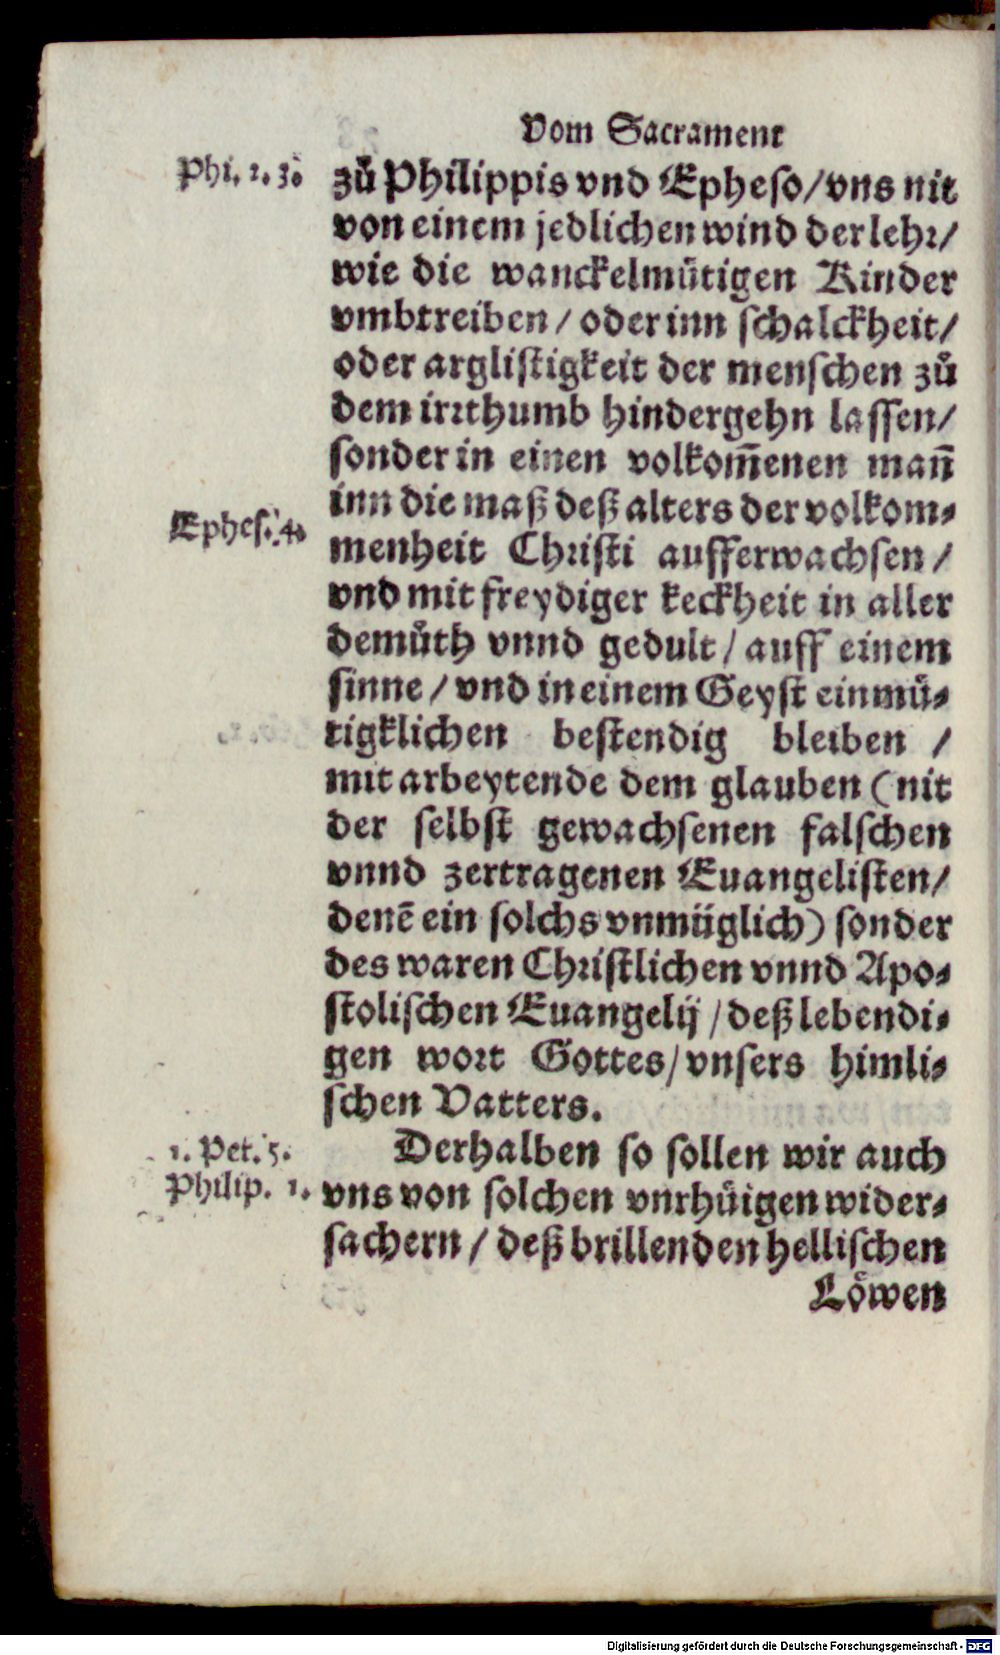 Vom Sacrament
Phi. 2. 3.
zů Philippis vnd Epheso/vns nit
von einem jedlichen wind der lehr/
wie die wanckelmütigen Kinder
vmbtreiben/ oder inn schalckheit/
oder arglistigkeit der menschen zů
dem irrthumb hindergehn lassen/
sonder in einen volkom̃enen mañ
inn die maß deß alters der volkom⸗
Ephes. 4.
menheit Christi aufferwachsen/
vnd mit freydiger keckheit in aller
demůth vnnd gedult/ auff einem
sinne/ vnd in einem Geyst einmů⸗
tigklichen bestendig bleiben /
mit arbeytende dem glauben (nit
der selbst gewachsenen falschen
vnnd zertragenen Euangelisten/
denẽ ein solchs vnmüglich) sonder
des waren Christlichen vnnd Apo⸗
stolischen Euangelij/deß lebendi⸗
gen wort Gottes/vnsers himli⸗
schen Vatters.
1. Pet. 5.
Derhalben so sollen wir auch
Philip. 1.
vns von solchen vnrhüigen wider⸗
sachern/ deß brillenden hellischen
Löwen
Digitalisierung gefördert durch die Deutsche Forschungsgemeinschaft - DFG